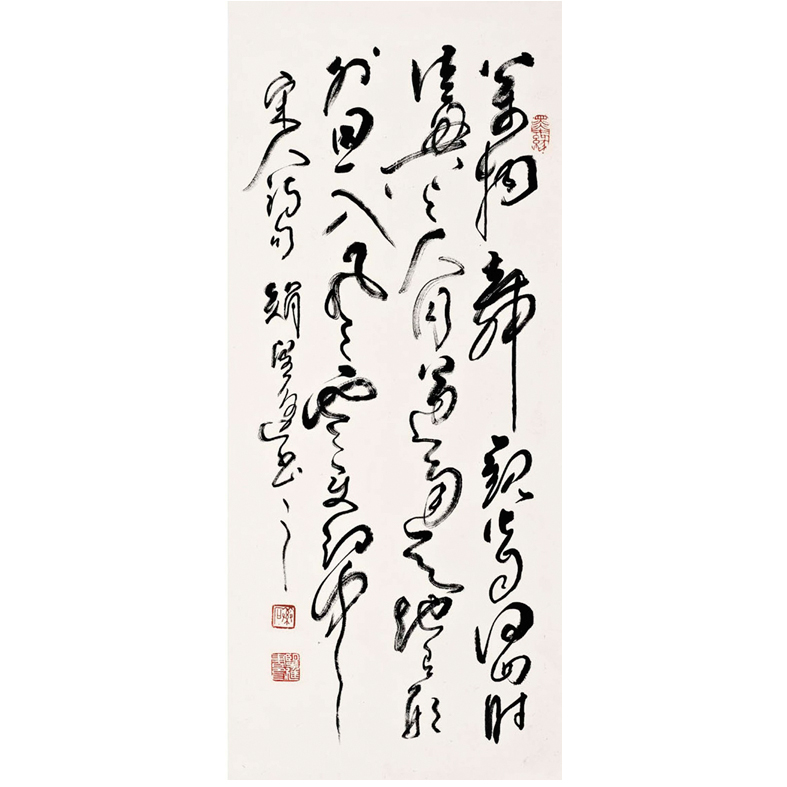 萬物靜觀皆自得四時
佳興与人同道通天地有形
外思入風雲變態中
宋人詩句 書